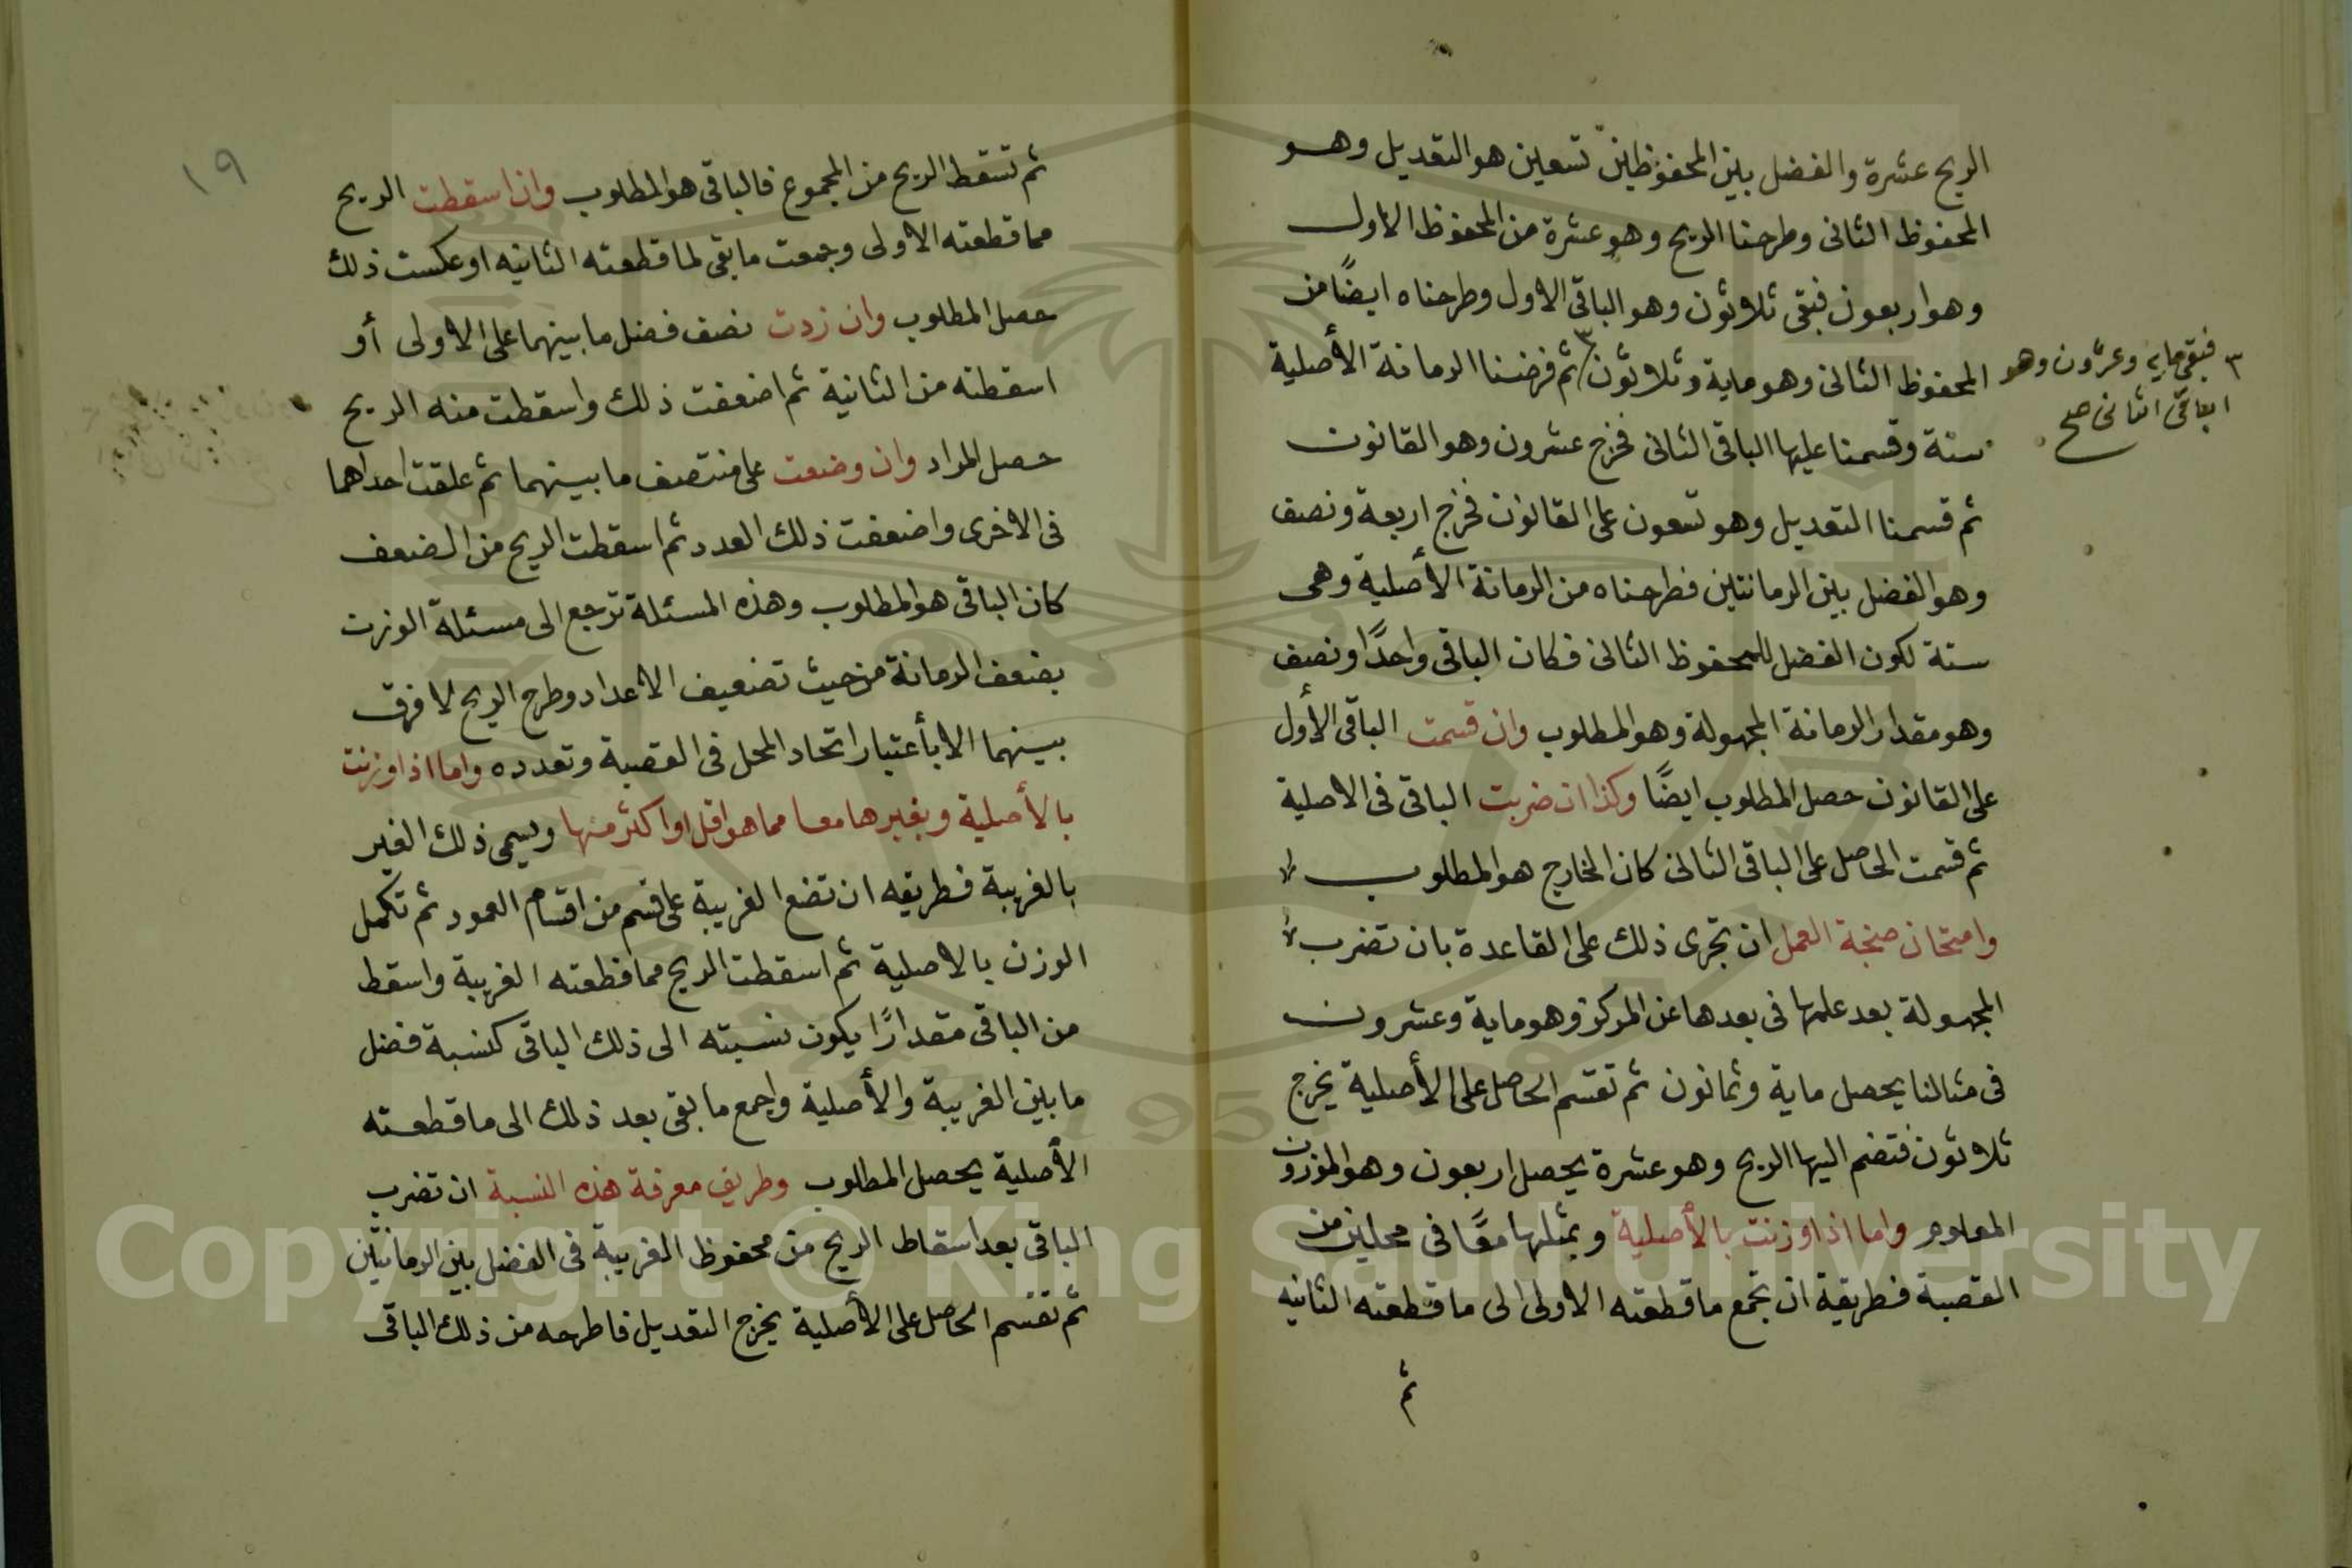 الريح عشرة والفضل بين المحفوظين تسعين هو التعديل وهو
المحفوظ الثانى وطرحنا الريح وهو عشرة من المحفوظ الاول
وهو اربعون فبقى ثلاثون وهو الباقى الاول وطرحناه ايضًا من
المحفوظ الثانى وهو ماية وثلاثون ٣ ثم فرضنا الرمانة الأصلية
٣ فبقى مايه وعشرون وهو
الباقى الثانى صح
ستة وقسمنا عليها الباقى الثانى فخرج عشرون وهو القانون
ثم قسمنا التعديل وهو تسعون على القانون فخرج اربعة ونصف
وهو الفضل بين الرمانتين فطرحناه من الرمانة الأصلية وهى
ستة لكون الفضل للمحفوظ الثانى فكان الباقى واحدًا ونصف
وهو مقدار الرمانة المجهولة وهو المطلوب وان قسمت الباقى الأول
على القانون حصل المطلوب ايضًا وكذا ان ضربت الباقى فى الاصلية
ثم قسمت الحاصل على الباقى الثانى كان الخارج هو المطلوب
وامتحان صنجة العمل ان تجرى ذلك على القاعدة بان تضرب
المجهولة بعد علمها فى بعدها عن المركز وهو ماية وعشرون
فى مثالنا يحصل ماية وثمانون ثم تقسم الحاصل على الأصلية يخرج
ثلاثون فتضم اليها الريح وهو عشرة يحصل اربعون وهو الموزون
المعلوم واما اذا وزنت بالأصلية وبمثلها معًا فى محلين من
القصبة فطريقة ان تجمع ما قطعته الاولى الى ما قطعته الثانيه
ثم
١٩
ثم تسقط الريح من المجموع فالباقى هو المطلوب وان اسقطت الريح
مما قطعته الاولى وجمعت ما بقى لما قطعته الثانيه او عكست ذلك
حصل المطلوب وان زدت نصف فضل ما بينهما على الاولى أو
اسقطته من الثانية ثم اضعفت ذلك واسقطت منه الريح
حصل المراد وان وضعت على منتصف ما بينهما ثم علقت احداهما
فى الاخرى واضعفت ذلك العدد ثم اسقطت الريح من الضعف
كان الباقى هو المطلوب وهذه المسئلة ترجع الى مسئلة الوزن
بضعف الرمانة من حيث تضعيف الاعداد وطرح الريح لا فرق
بينهما الا بأعتبار اتحاد المحل فى القصبة وتعدده واما اذا وزنت
بالأصلية وبغيرها معا مما هو اقل او اكثر منها ويسمى ذلك الغير
بالغريبة فطريقه ان تضع الغريبة على قسم من اقسام العمود ثم تكمل
الوزن بالاصلية ثم اسقطت الريح مما قطعته الغريبة واسقط
من الباقى مقدارًا يكون نسبته الى ذلك الباقى كنسبة فضل
ما بين الغريبة والأصلية واجمع ما بقى بعد ذلك الى ما قطعته
الأصلية يحصل المطلوب وطريق معرفة هذه النسبة ان تضرب
الباقى بعد اسقاط الريح من محفوظ الغريبة فى الفضل بين الرمانتين
ثم تقسم الحاصل على الأصلية يخرج التعديل فاطرحه من ذلك الباقى
Copyright © King Saud University